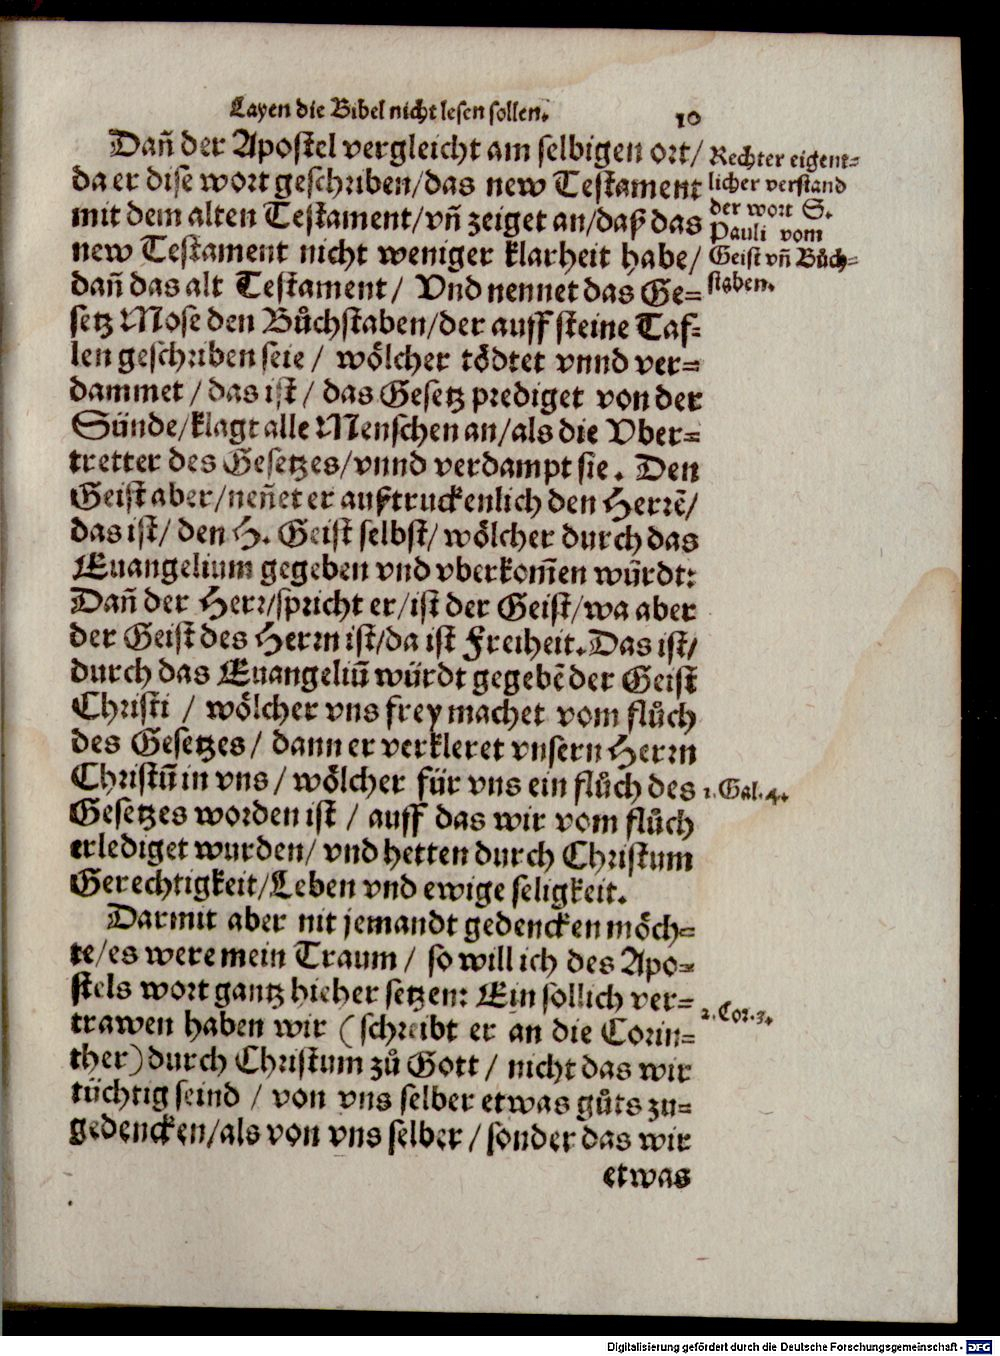 Layen die Bibel nicht lesen sollen. 10
Dañ der Apostel vergleicht am selbigen ort/
da er dise wort geschriben/das new Testament
mit dem alten Testament/vñ zeiget an/daß das
new Testament nicht weniger klarheit habe/
dañ das alt Testament/ Vnd nennet das Ge=
setz Mose den Bůchstaben/der auff steine Taf=
len geschriben seie / wölcher tödtet vnnd ver=
dammet / das ist / das Gesetz prediget von der
Sünde/klagt alle Menschen an/als die Vber=
tretter des Gesetzes/vnnd verdampt sie. Den
Geist aber/neñet er außtruckenlich den Herrẽ/
das ist/ den H. Geist selbst/ wölcher durch das
Euangelium gegeben vnd vberkom̃en würdt:
Dañ der Herr/spricht er/ist der Geist/wa aber
der Geist des Herrn ist/da ist Freiheit. Das ist/
durch das Euangeliũ würdt gegebẽ der Geist
Christi / wölcher vns frey machet vom flůch
des Gesetzes/ dann er verkleret vnsern Herrn
Christũ in vns / wölcher für vns ein flůch des
Gesetzes worden ist / auff das wir vom flůch
erlediget wurden/ vnd hetten durch Christum
Gerechtigkeit/Leben vnd ewige seligkeit.
Darmit aber nit jemandt gedencken möch=
te/es were mein Traum / so will ich des Apo=
stels wort gantz hieher setzen: Ein sollich ver=
trawen haben wir (schreibt er an die Corin=
ther) durch Christum zů Gott / nicht das wir
tüchtig seind / von vns selber etwas gůts zu=
gedencken/als von vns selber / sonder das wir
etwas
Rechter eigent=
licher verstand
der wort S.
Pauli vom
Geist vñ Bůch=
staben.
1. Gal. 4.
2. Cor. 3.
Digitalisierung gefördert durch die Deutsche Forschungsgemeinschaft - DFG